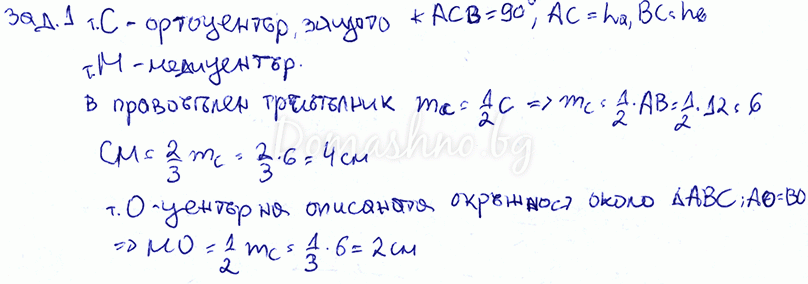 Зад.1 т.C - ортоцентър, защото ∢ACB=90°, AC=ha, BC=hb
т.M - медицентър.
В правоъгълен триъгълник mc = 1/2 c => mc = 1/2 · AB = 1/2 · 12 = 6
CM = 2/3 mc = 2/3 · 6 = 4 см
Domashno.bg
т.O - център на описаната окръжност около ΔABC; AO=BO
=> MO = 1/2 mc = 1/3 · 6 = 2 см